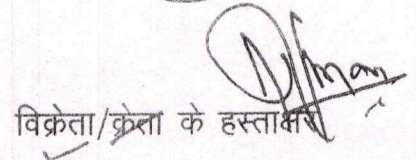 विक्रेता/क्रेता के हस्ताक्षर